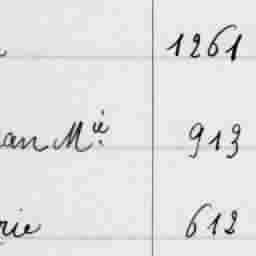 1261
an Mie 913
rie 612